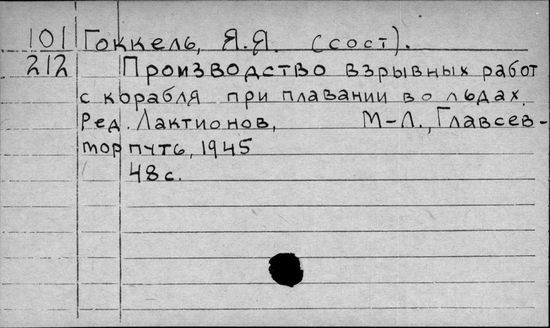 101 Гоккель, Я.Я. (сост).
212 Производство взрывных работ
с корабля при плавании во льдах.
Ред. Лактионов, М-Л., Главсев-
морпуть, 1945
48 с.